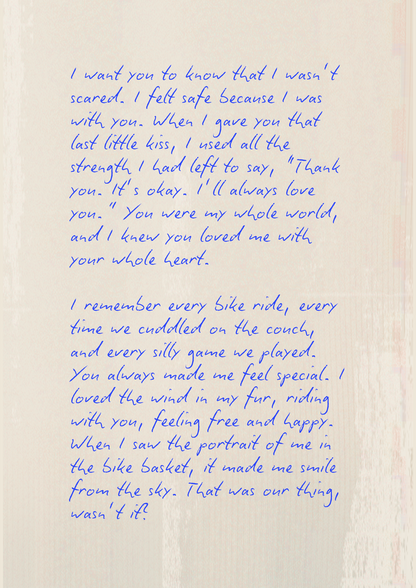 I want you to know that I wasn't
scared. I felt safe because I was
with you. When I gave you that
last little kiss, I used all the
strength I had left to say, "Thank
you. It's okay. I'll always love
you." You were my whole world,
and I knew you loved me with
your whole heart.

I remember every bike ride, every
time we cuddled on the couch,
and every silly game we played.
You always made me feel special. I
loved the wind in my fur, riding
with you, feeling free and happy.
When I saw the portrait of me in
the bike basket, it made me smile
from the sky. That was our thing,
wasn't it?